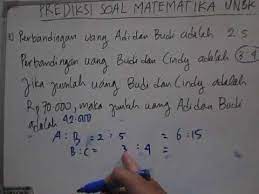 PREDIKSI SOAL MATEMATIKA UNBK
1) Perbandingan uang Adi dan Budi adalah 2:5
Perbandingan uang Budi dan Cindy adalah 3:4
Jika jumlah uang Budi dan Cindy adalah
Rp 70.000, maka jumlah uang Adi dan Budi
adalah 42.000
A : B = 2 : 5 = 6 : 15
B : C = 3 : 4 =